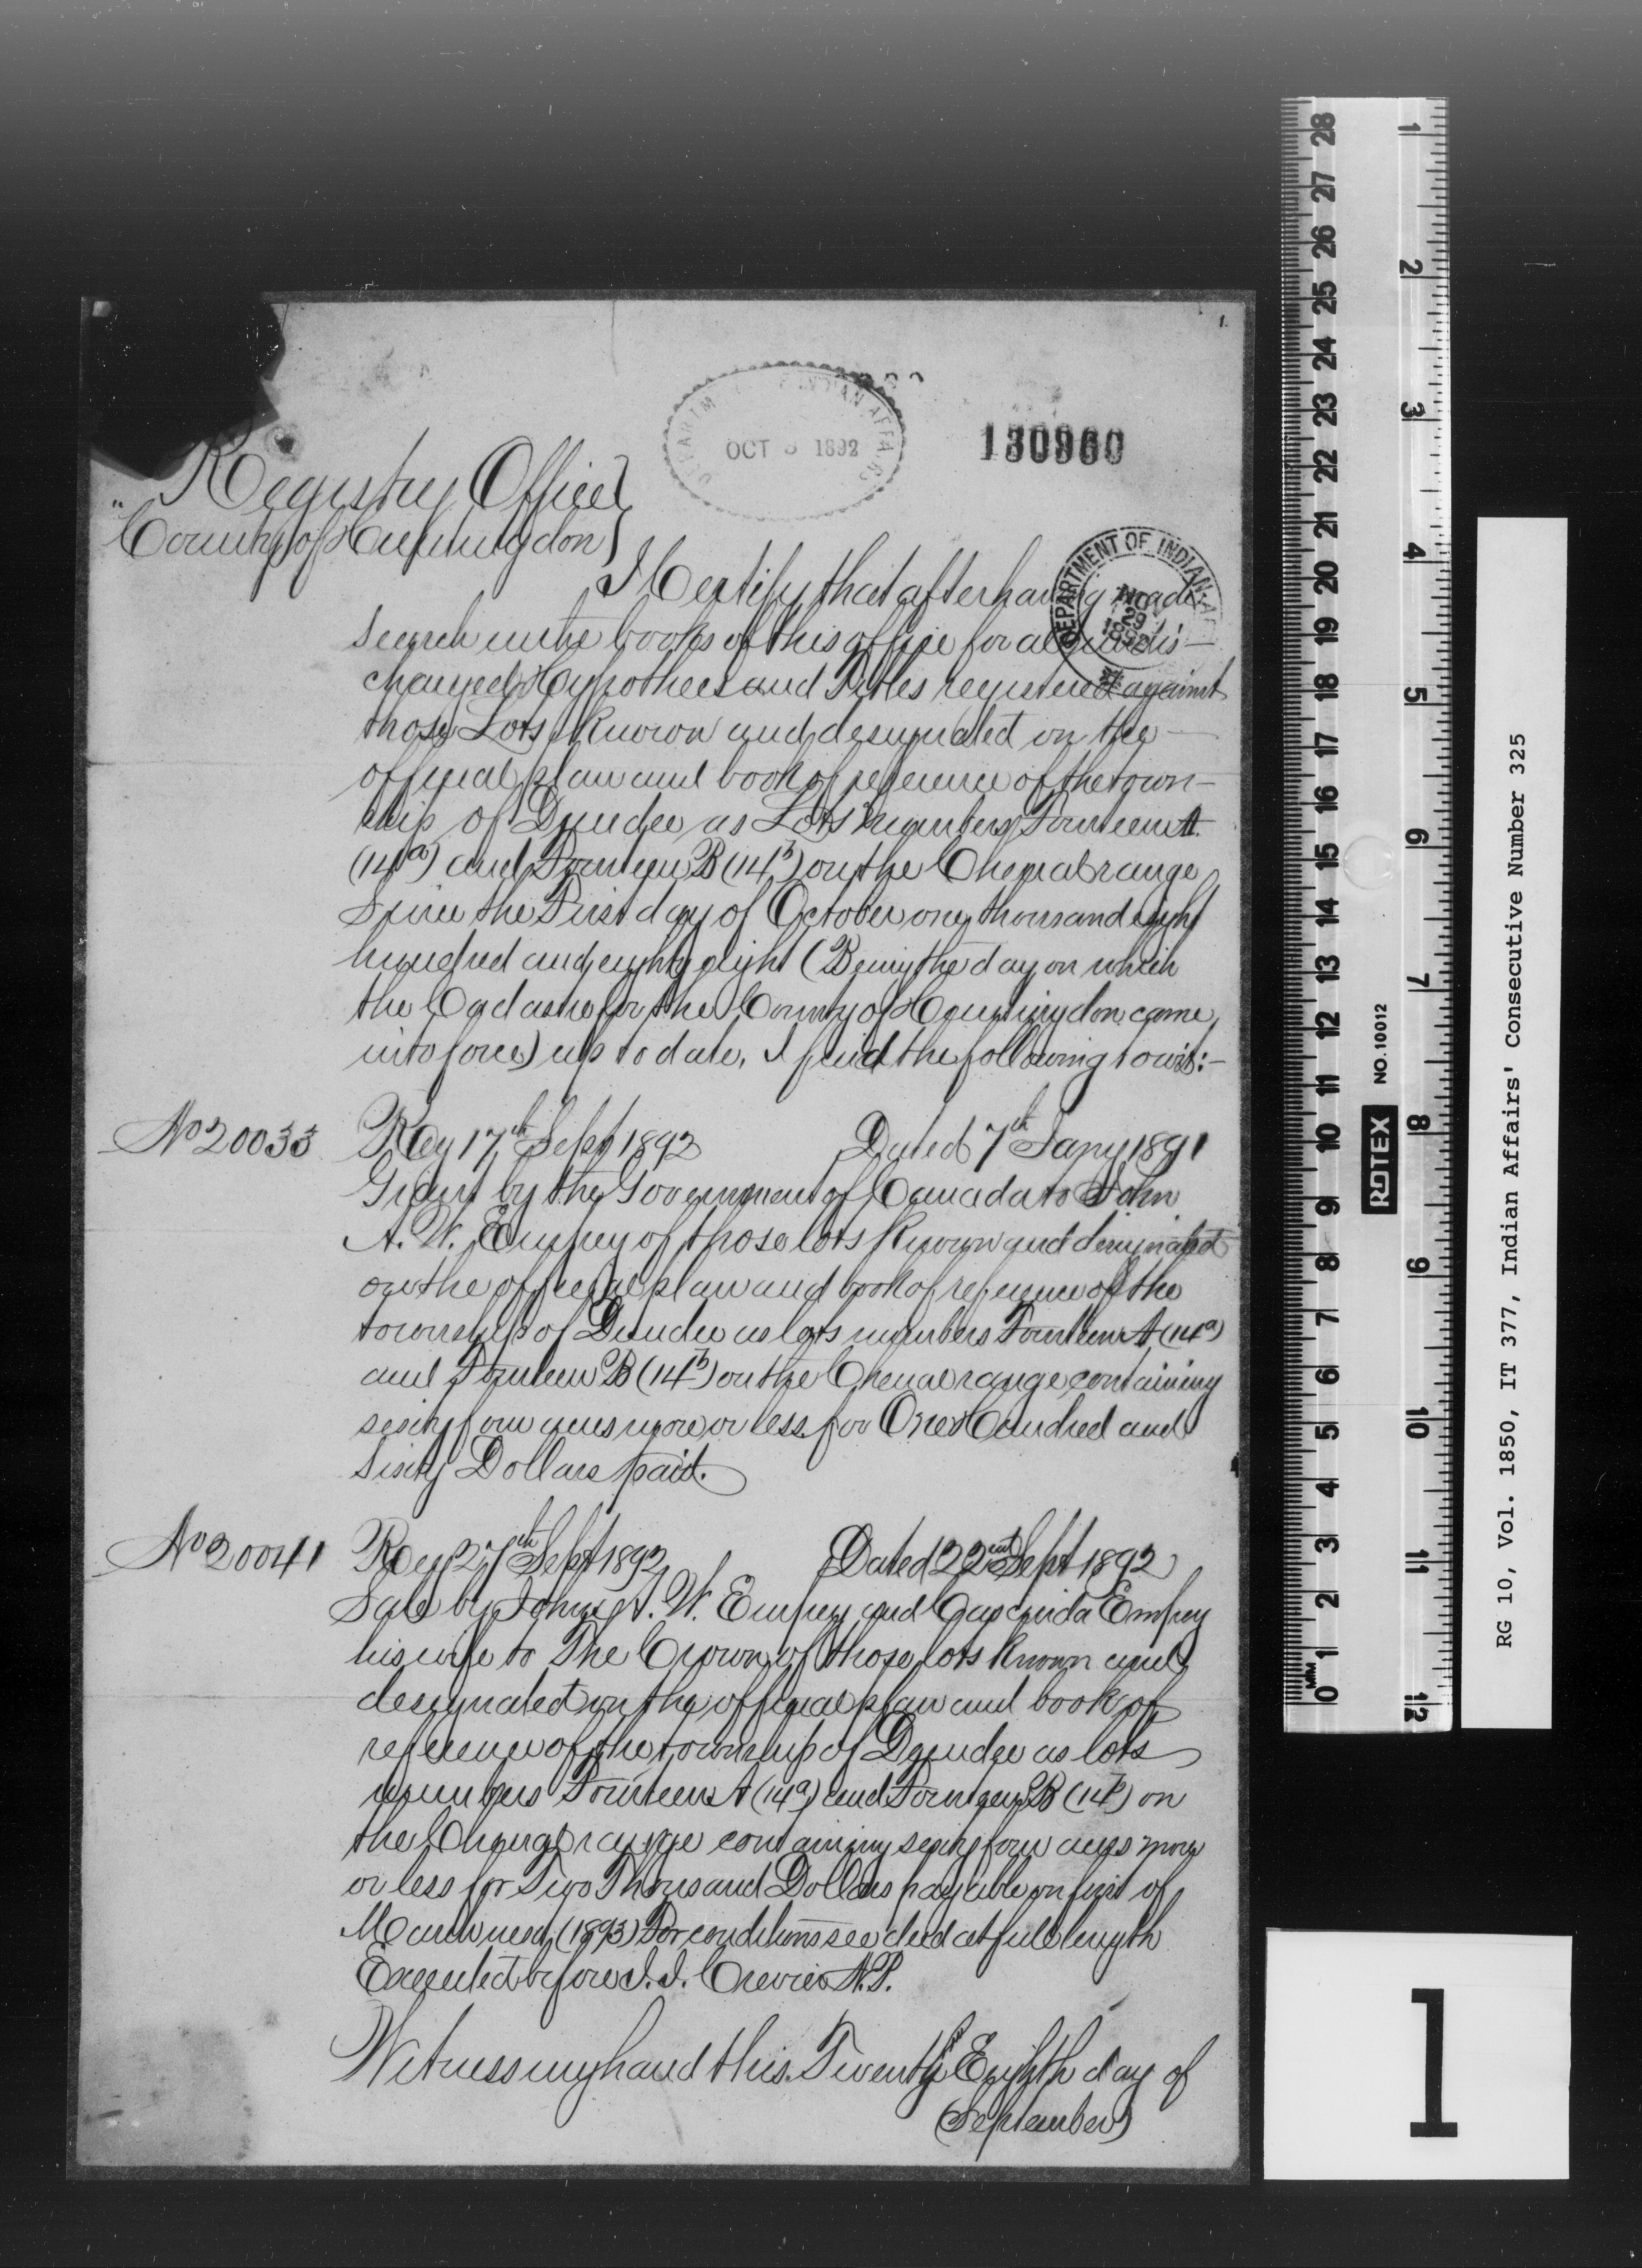 1.
DEPARTM INDIAN AFFAIRS
OCT 3 1892
130960
Registry Office
County of Huntingdon
DEPARTMENT OF INDIAN A
29
1892
I Certify that after having made
search in the books of this office for all undis-
charged Hypothecs and Titles registered against
those Lots Known and designated on the
official plan and book of reference of the town-
ship of Dundee as Lots numbers Fourteen A
(14a) and Fourteen B (14b) on the Chenal range
Since the First day of October one thousand eight
hundred and eighty eight (Being the day on which
the Cadastre for the County of Huntingdon came
into force) up to date, I find the following to wit:-
No 20033 Reg 17th Sept 1892 Dated 7th Jany 1891
Grant by the Government of Canada to John
A. W. Empey of those lots Known and designated
on the official plan and book of reference of the
township of Dundee as lots numbers Fourteen A (14a)
and Fourteen B (14b) on the Chenal range containing
sixty four acres more or less for One Hundred and
Sixty Dollars paid.
No 20041 Reg 27th Sept 1892 Dated 22nd Sept 1892
Sale by John A. W. Empey and Empey
his wife to The Crown of those lots Known and
designated on the official plan and book of
reference of the township of Dundee as lots
numbers Fourteen A (14a) and Fourteen B (14b) on
the Chenal range containing sixty four acres more
or less for Two Thousand Dollars payable on first of
March next (1893) For conditions see deed at full length
Executed before I. I. Crevier N.P.
Witness my hand this Twenty Eighth day of
(September)
28 27 26 25 24 23 22 21 20 19 18 17 16 15 14 13 12 11 10 9 8 7 6 5 4 3 2 1 0
MM
ROTEX NO. 10012
1 2 3 4 5 6 7 8 9 10 11 12
RG 10, Vol. 1850, IT 377, Indian Affairs' Consecutive Number 325
1